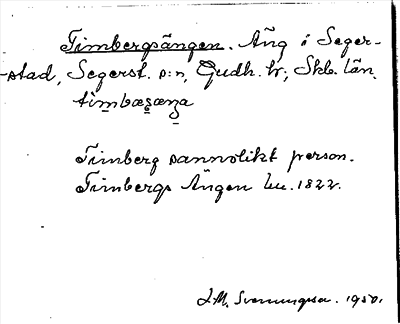 Timbergsängen. Äng i Seger-
-stad, Segerst. s:n, Gudh. hr; Skb. län.
timbæs̱æŋa
Timberg sannolikt person.
Timbergs Ängen Lu. 1822.
J.M. Svenungsson. 1950.